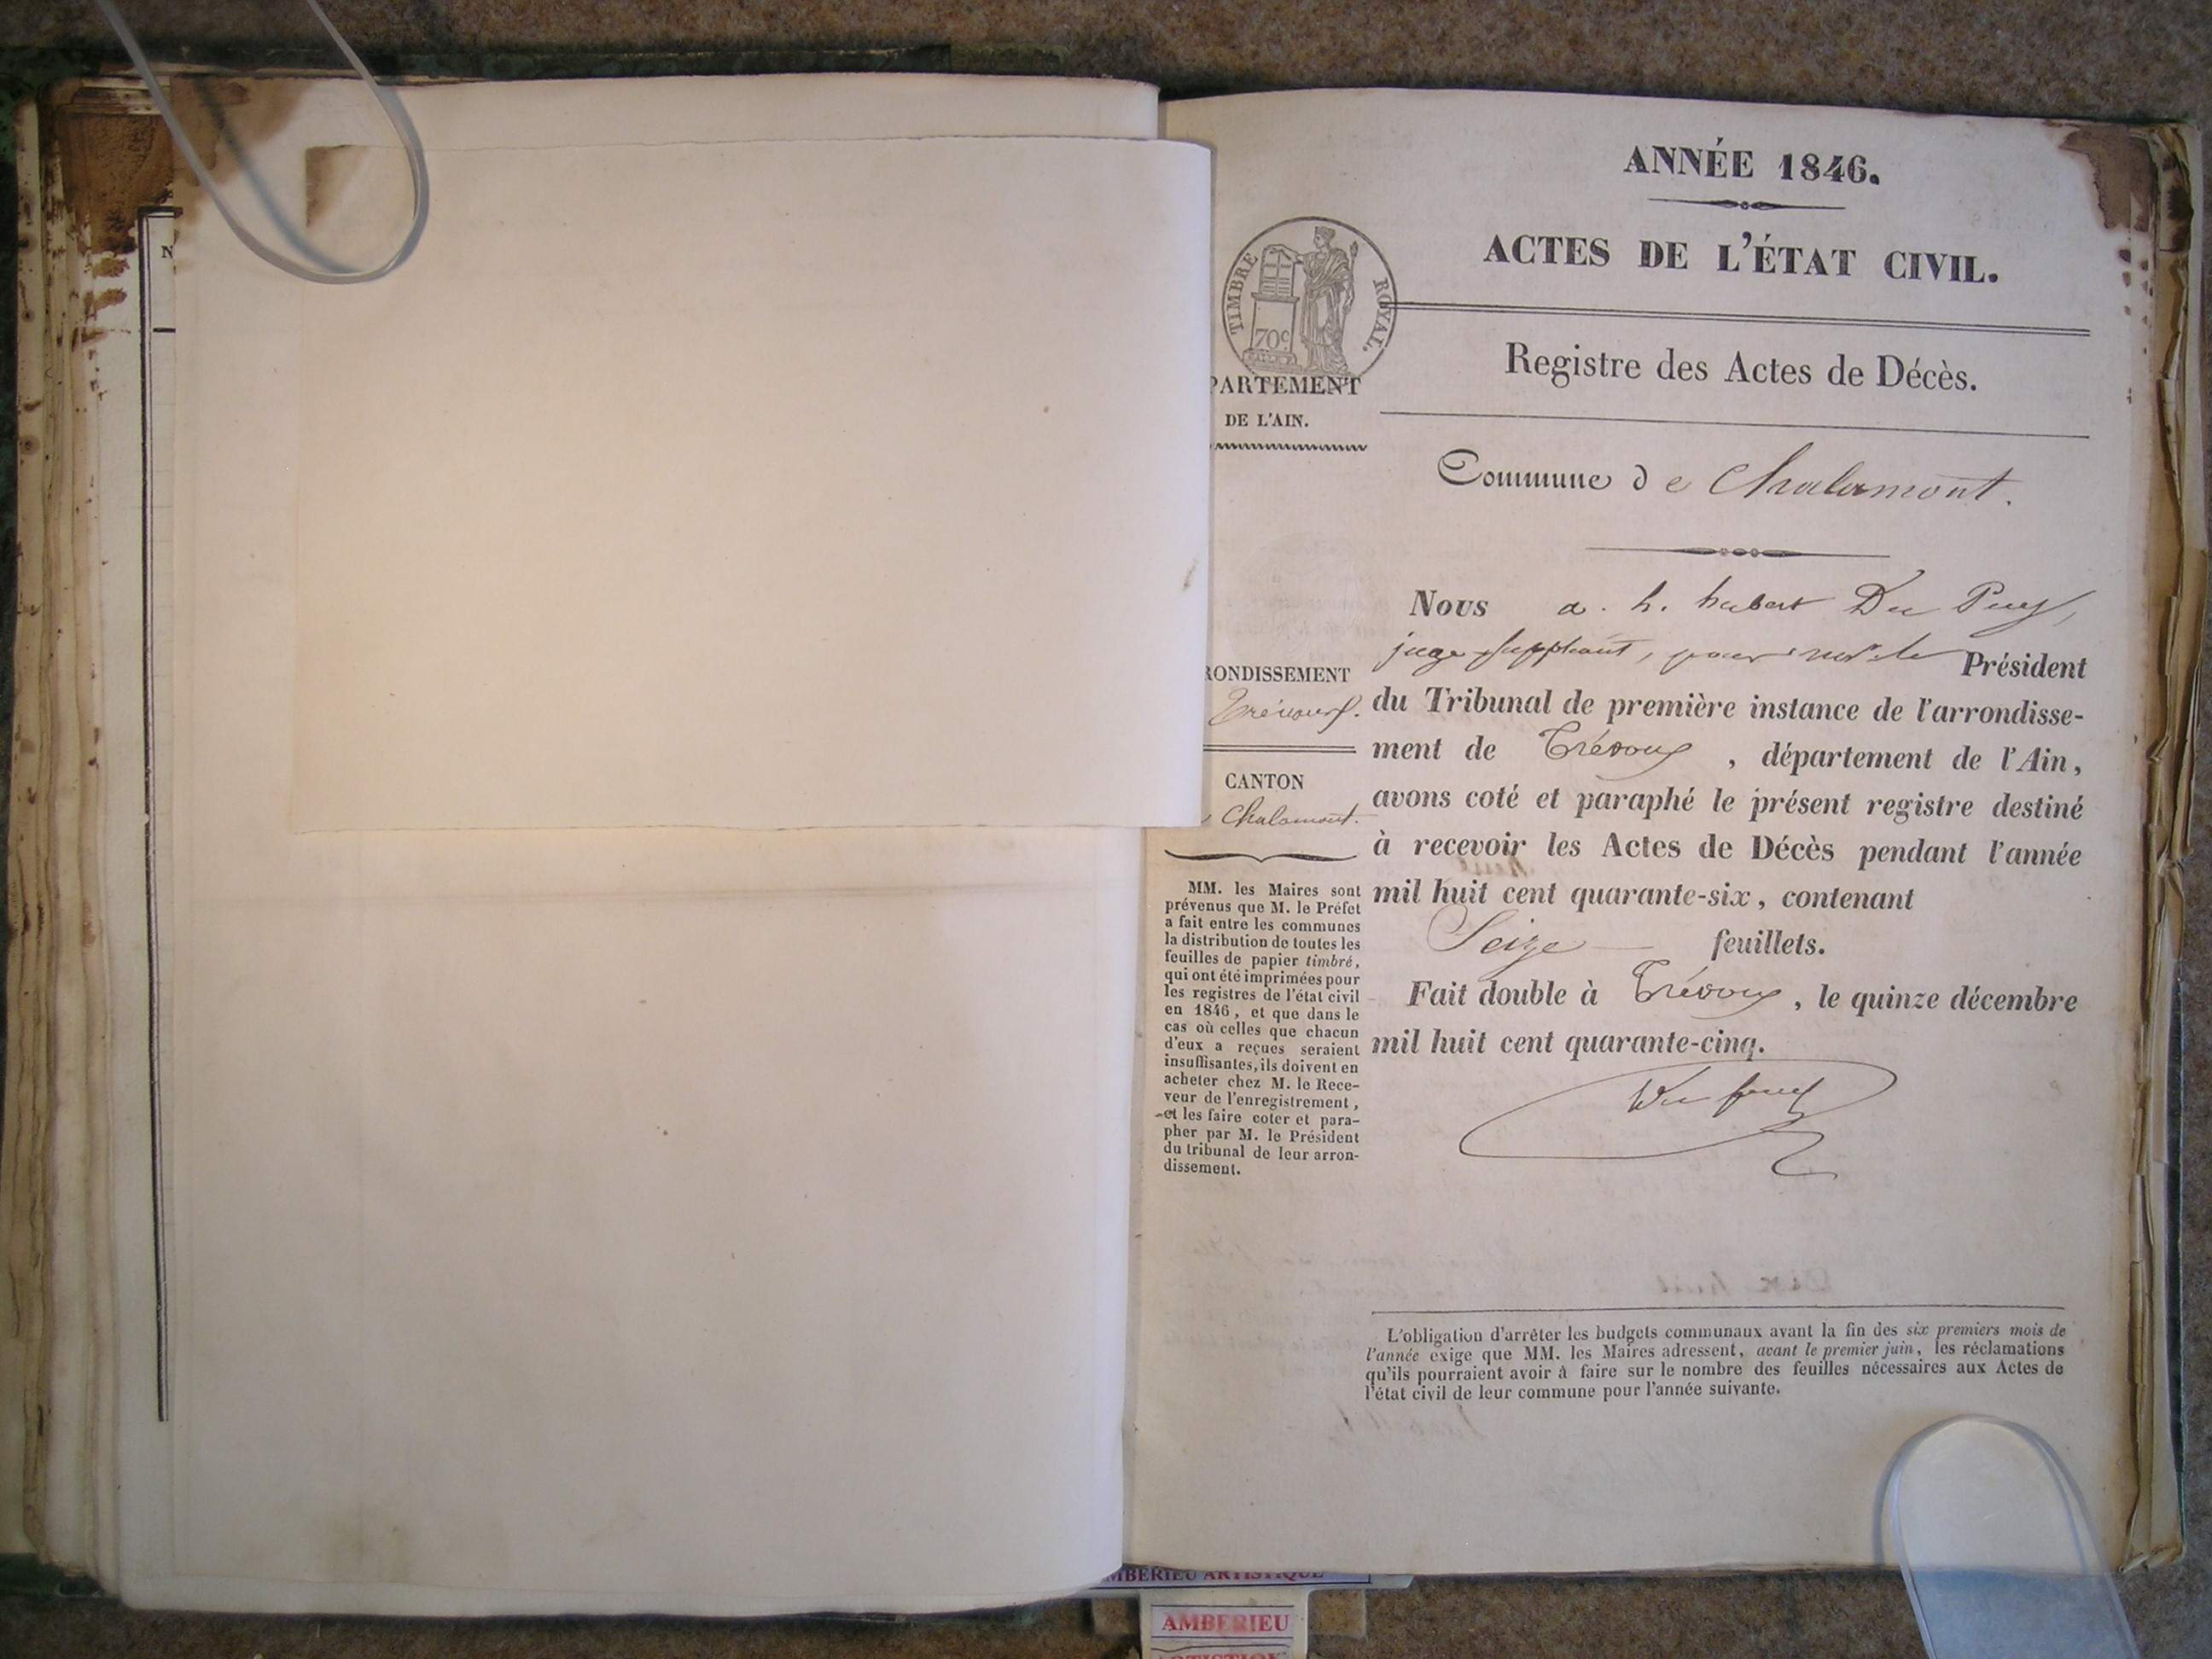 N
ANNÉE 1846.
ACTES DE L'ÉTAT CIVIL.
TIMBRE ROYAL.
70c
Registre des Actes de Décès.
PARTEMENT
DE L'AIN.
Commune de Chalamont.
Nous a. h. hubert Du Puy,
juge suppléant, pour mr le Président
du Tribunal de première instance de l'arrondisse-
ment de Trévoux, département de l'Ain,
avons coté et paraphé le présent registre destiné
à recevoir les Actes de Décès pendant l'année
mil huit cent quarante-six, contenant
Seize feuillets.
Fait double à Trévoux, le quinze décembre
mil huit cent quarante-cinq.
Du puy
RONDISSEMENT
Trévoux.
CANTON
Chalamont.
MM. les Maires sont
prévenus que M. le Préfet
a fait entre les communes
la distribution de toutes les
feuilles de papier timbré,
qui ont été imprimées pour
les registres de l'état civil
en 1846, et que dans le
cas où celles que chacun
d'eux a reçues seraient
insuffisantes, ils doivent en
acheter chez M. le Rece-
veur de l'enregistrement,
et les faire coter et para-
pher par M. le Président
du tribunal de leur arron-
dissement.
L'obligation d'arrêter les budgets communaux avant la fin des six premiers mois de
l'année exige que MM. les Maires adressent, avant le premier juin, les réclamations
qu'ils pourraient avoir à faire sur le nombre des feuilles nécessaires aux Actes de
l'état civil de leur commune pour l'année suivante.
MBERIEU ARTISTIQUE
AMBERIEU
ARTISTIQU